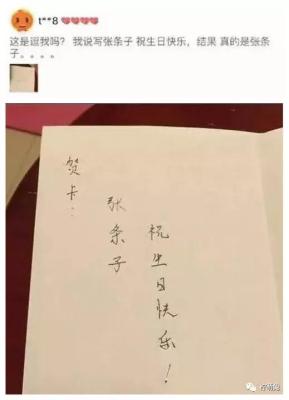 t**8
这是逗我吗？ 我说写张条子 祝生日快乐，结果 真的是张条
子。。。。
贺卡：
张条子
祝生日快乐！